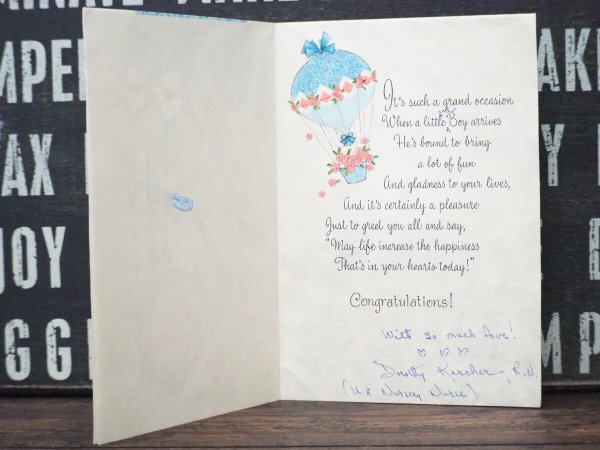 MPE
AX
JOY
GG
AK
Y
MP
It's such a grand occasion
When a little Boy arrives
He's bound to bring
a lot of fun
And gladness to your lives,
And it's certainly a pleasure
Just to greet you all and say,
"May life increase the happiness
That's in your hearts today!"
Congratulations!
With so much love!
♡ ♡ ♡
Dorothy Karcher, R.N.
(Ur Nursery Nurse)